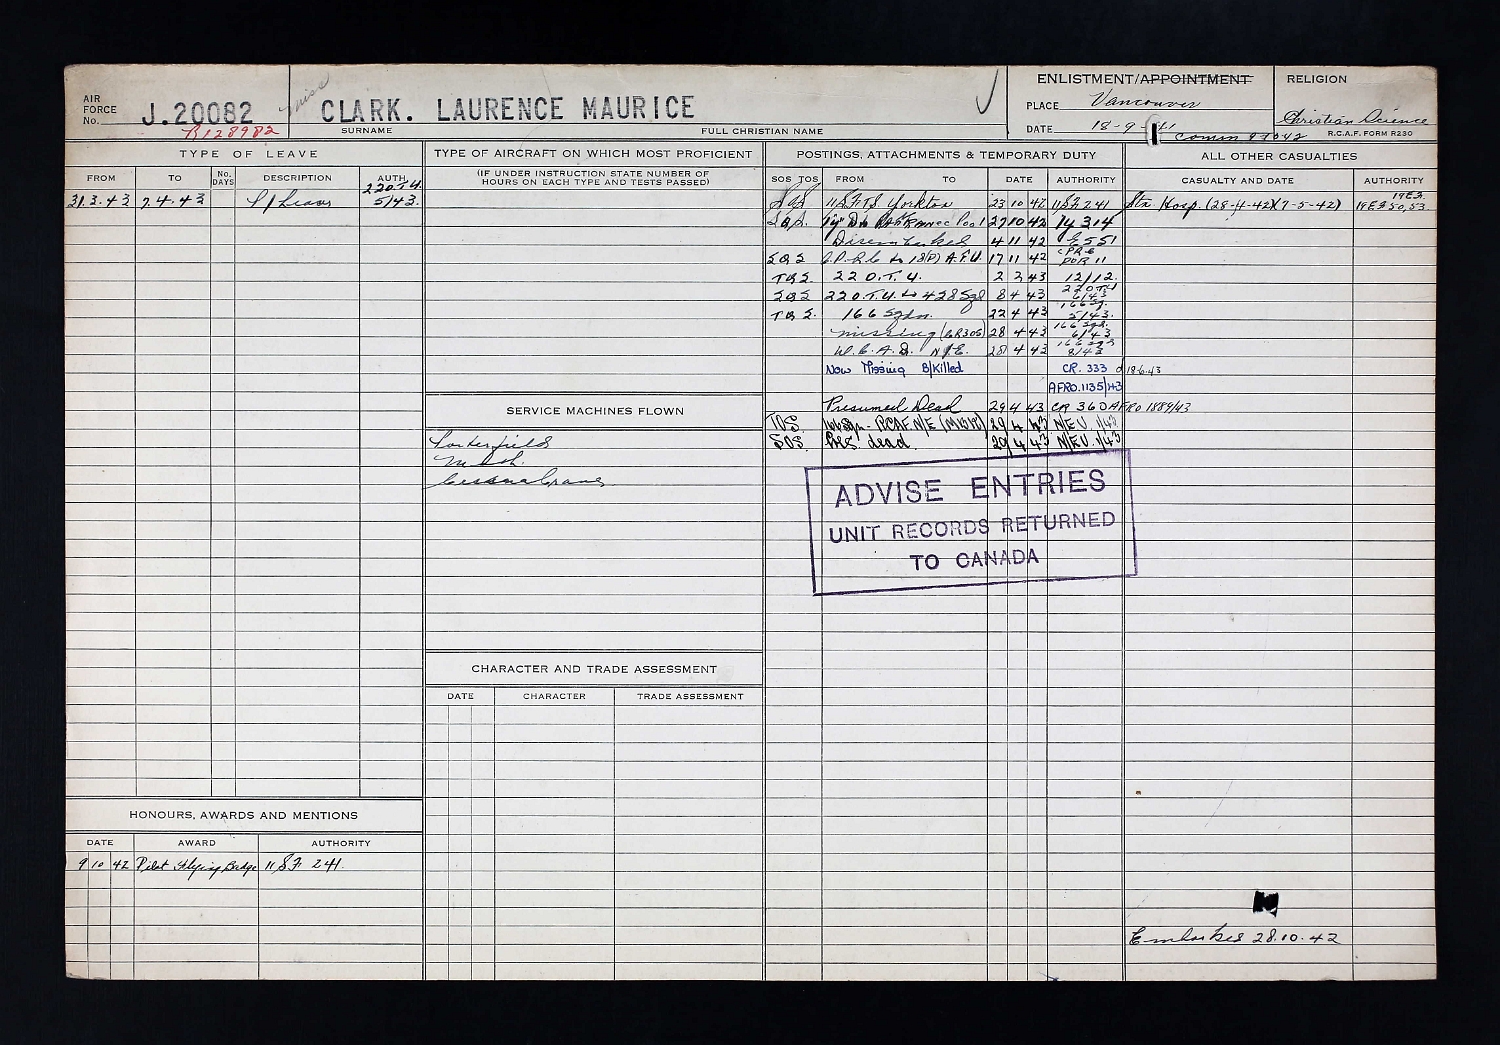 AIR FORCE No. J.20082
R128982
CLARK. LAURENCE MAURICE
SURNAME FULL CHRISTIAN NAME
ENLISTMENT/APPOINTMENT
PLACE Vancouver
DATE 18-9-41
RELIGION
Christian Science
R.C.A.F. FORM R230
TYPE OF LEAVE
FROM TO No. DAYS DESCRIPTION AUTH.
22 O.T.U.
31.3.43 7.4.43 P/Leave 5/43.
HONOURS, AWARDS AND MENTIONS
DATE AWARD AUTHORITY
9 10 42 Pilot Flying Badge 11 SF 241.
TYPE OF AIRCRAFT ON WHICH MOST PROFICIENT
(IF UNDER INSTRUCTION STATE NUMBER OF
HOURS ON EACH TYPE AND TESTS PASSED)
SERVICE MACHINES FLOWN
Cessna Crane
CHARACTER AND TRADE ASSESSMENT
DATE CHARACTER TRADE ASSESSMENT
POSTINGS, ATTACHMENTS & TEMPORARY DUTY
SOS TOS FROM TO DATE AUTHORITY
SOS 11 S.F.T.S. Yorkton 23 10 42 11 SF 241
SOS 27 10 42 1Y 314
Disembarked 4 11 42 E551
SOS to 18(P) A.F.U. 17 11 42 PDR 11
TOS 22 O.T.U. 2 3 43 12/12.
SOS 22 O.T.U. to 428 Sqd 8 4 43 22 OTU 6/43
TOS 166 Sqdn. 22 4 43 166 Sq. 5/43.
missing 28 4 43 166 Sqd. 6/43
N/E. 28 4 43 8/43
Now Missing B/Killed CR. 333 d 18.6.43
AFRO.1135/43
Presumed Dead 29 4 43 CR 360 AFRO 1889/43
TOS N/E 29 4 43 N/EU. 1/43
SOS Pres. dead. 29 4 43 N/EU. 1/43
ADVISE ENTRIES
UNIT RECORDS RETURNED
TO CANADA
ALL OTHER CASUALTIES
CASUALTY AND DATE AUTHORITY
Stn. Hosp. (28-4-42)(7-5-42)
Embarked 28.10.42